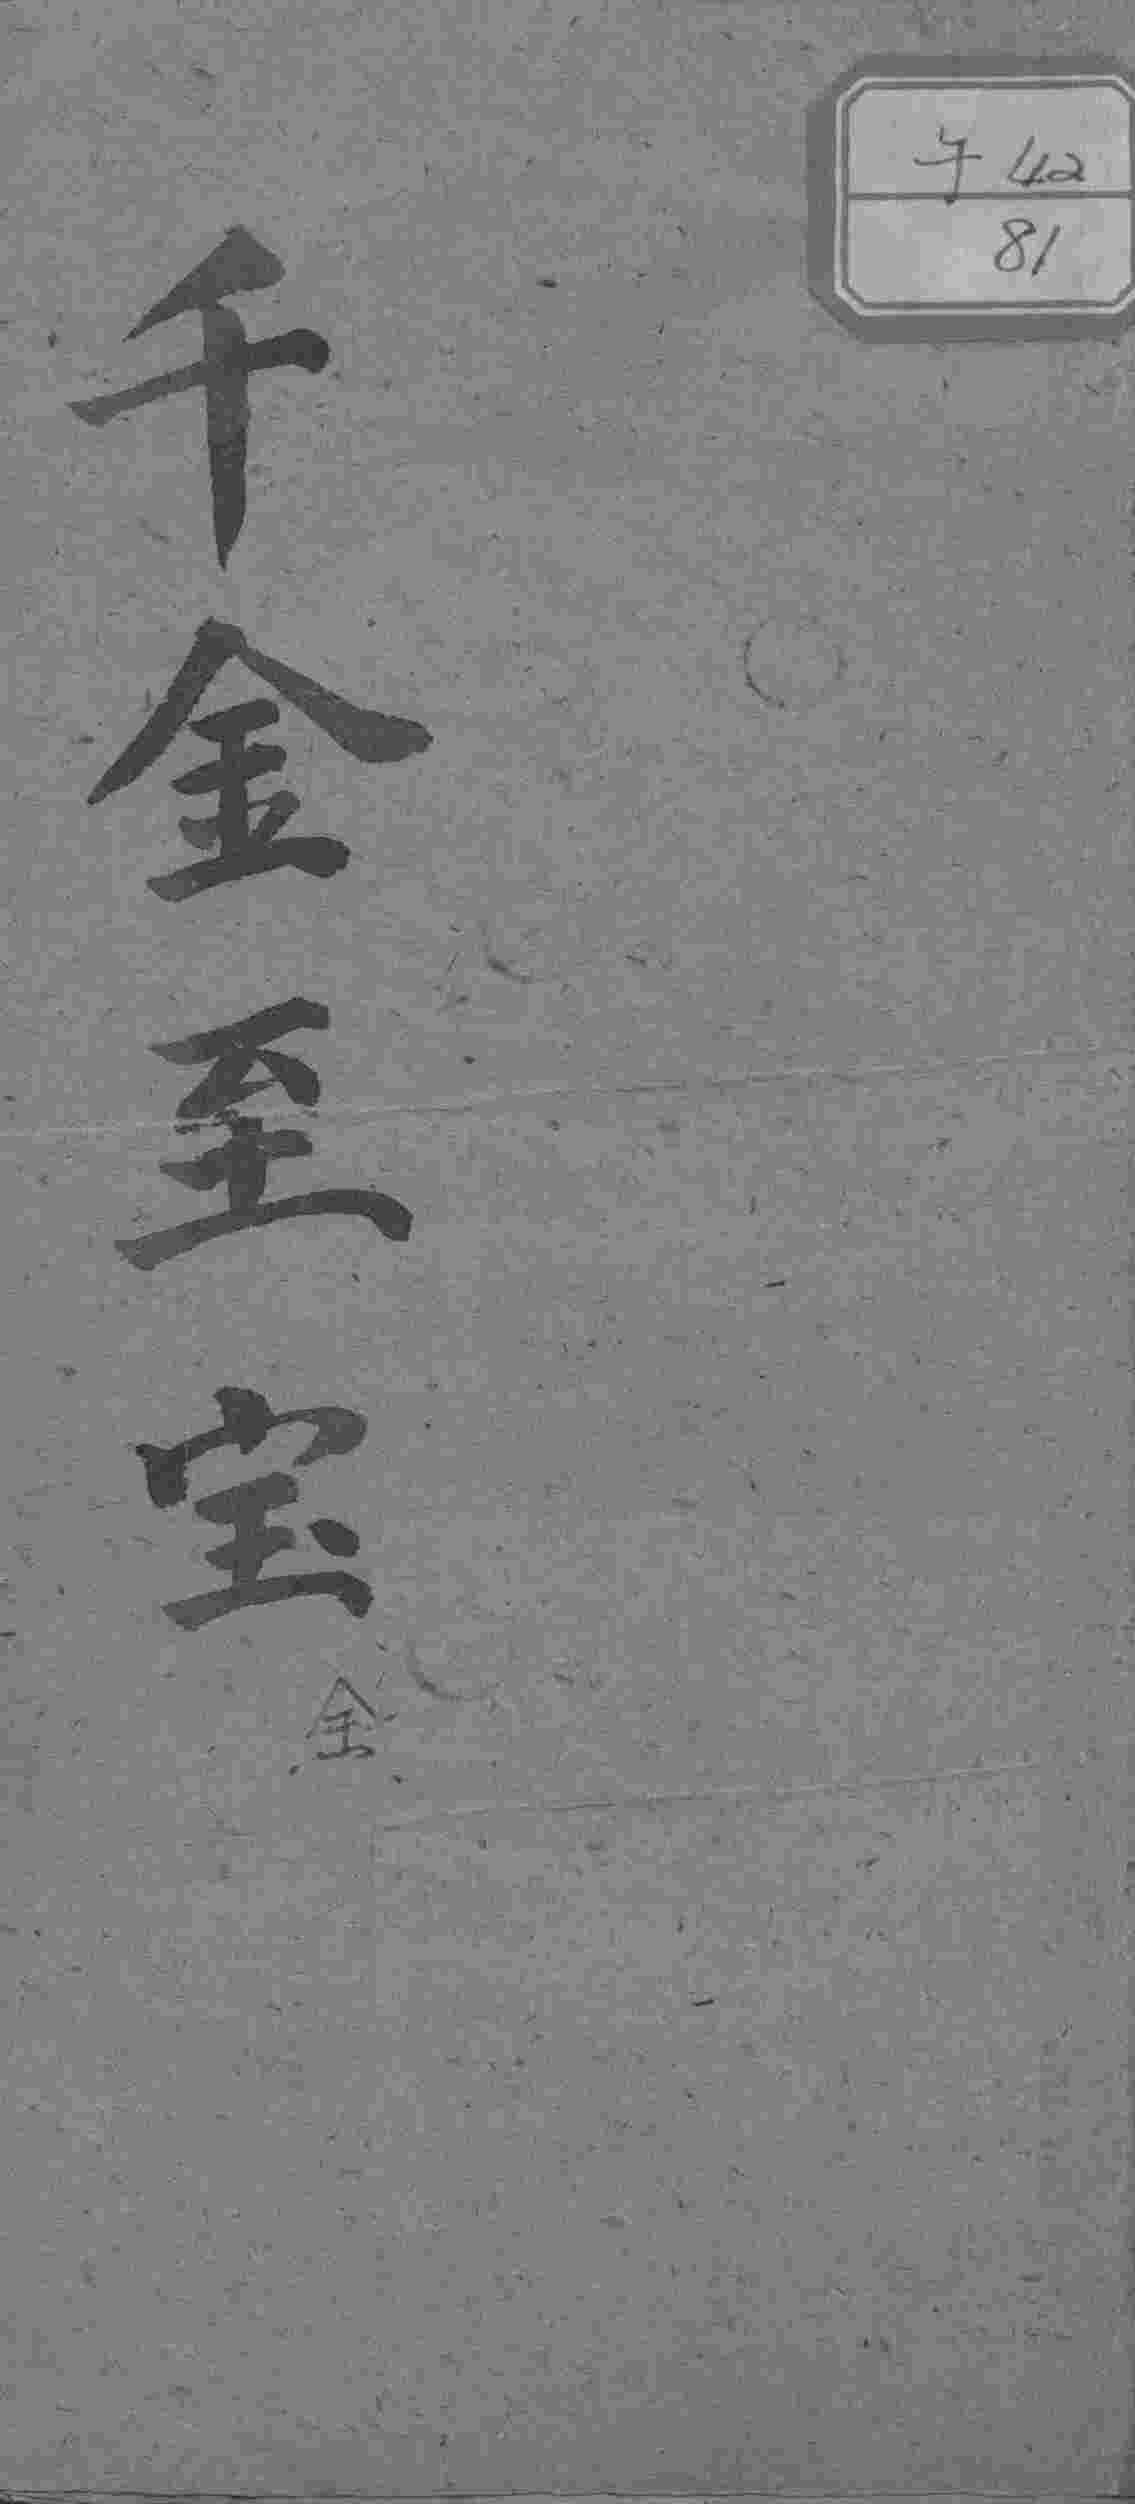 子42
81
千金至宝
全